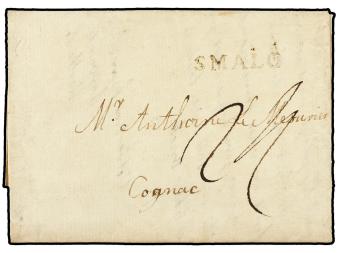 SMALO
Mr. Anthoine Le Mesurier
Cognac